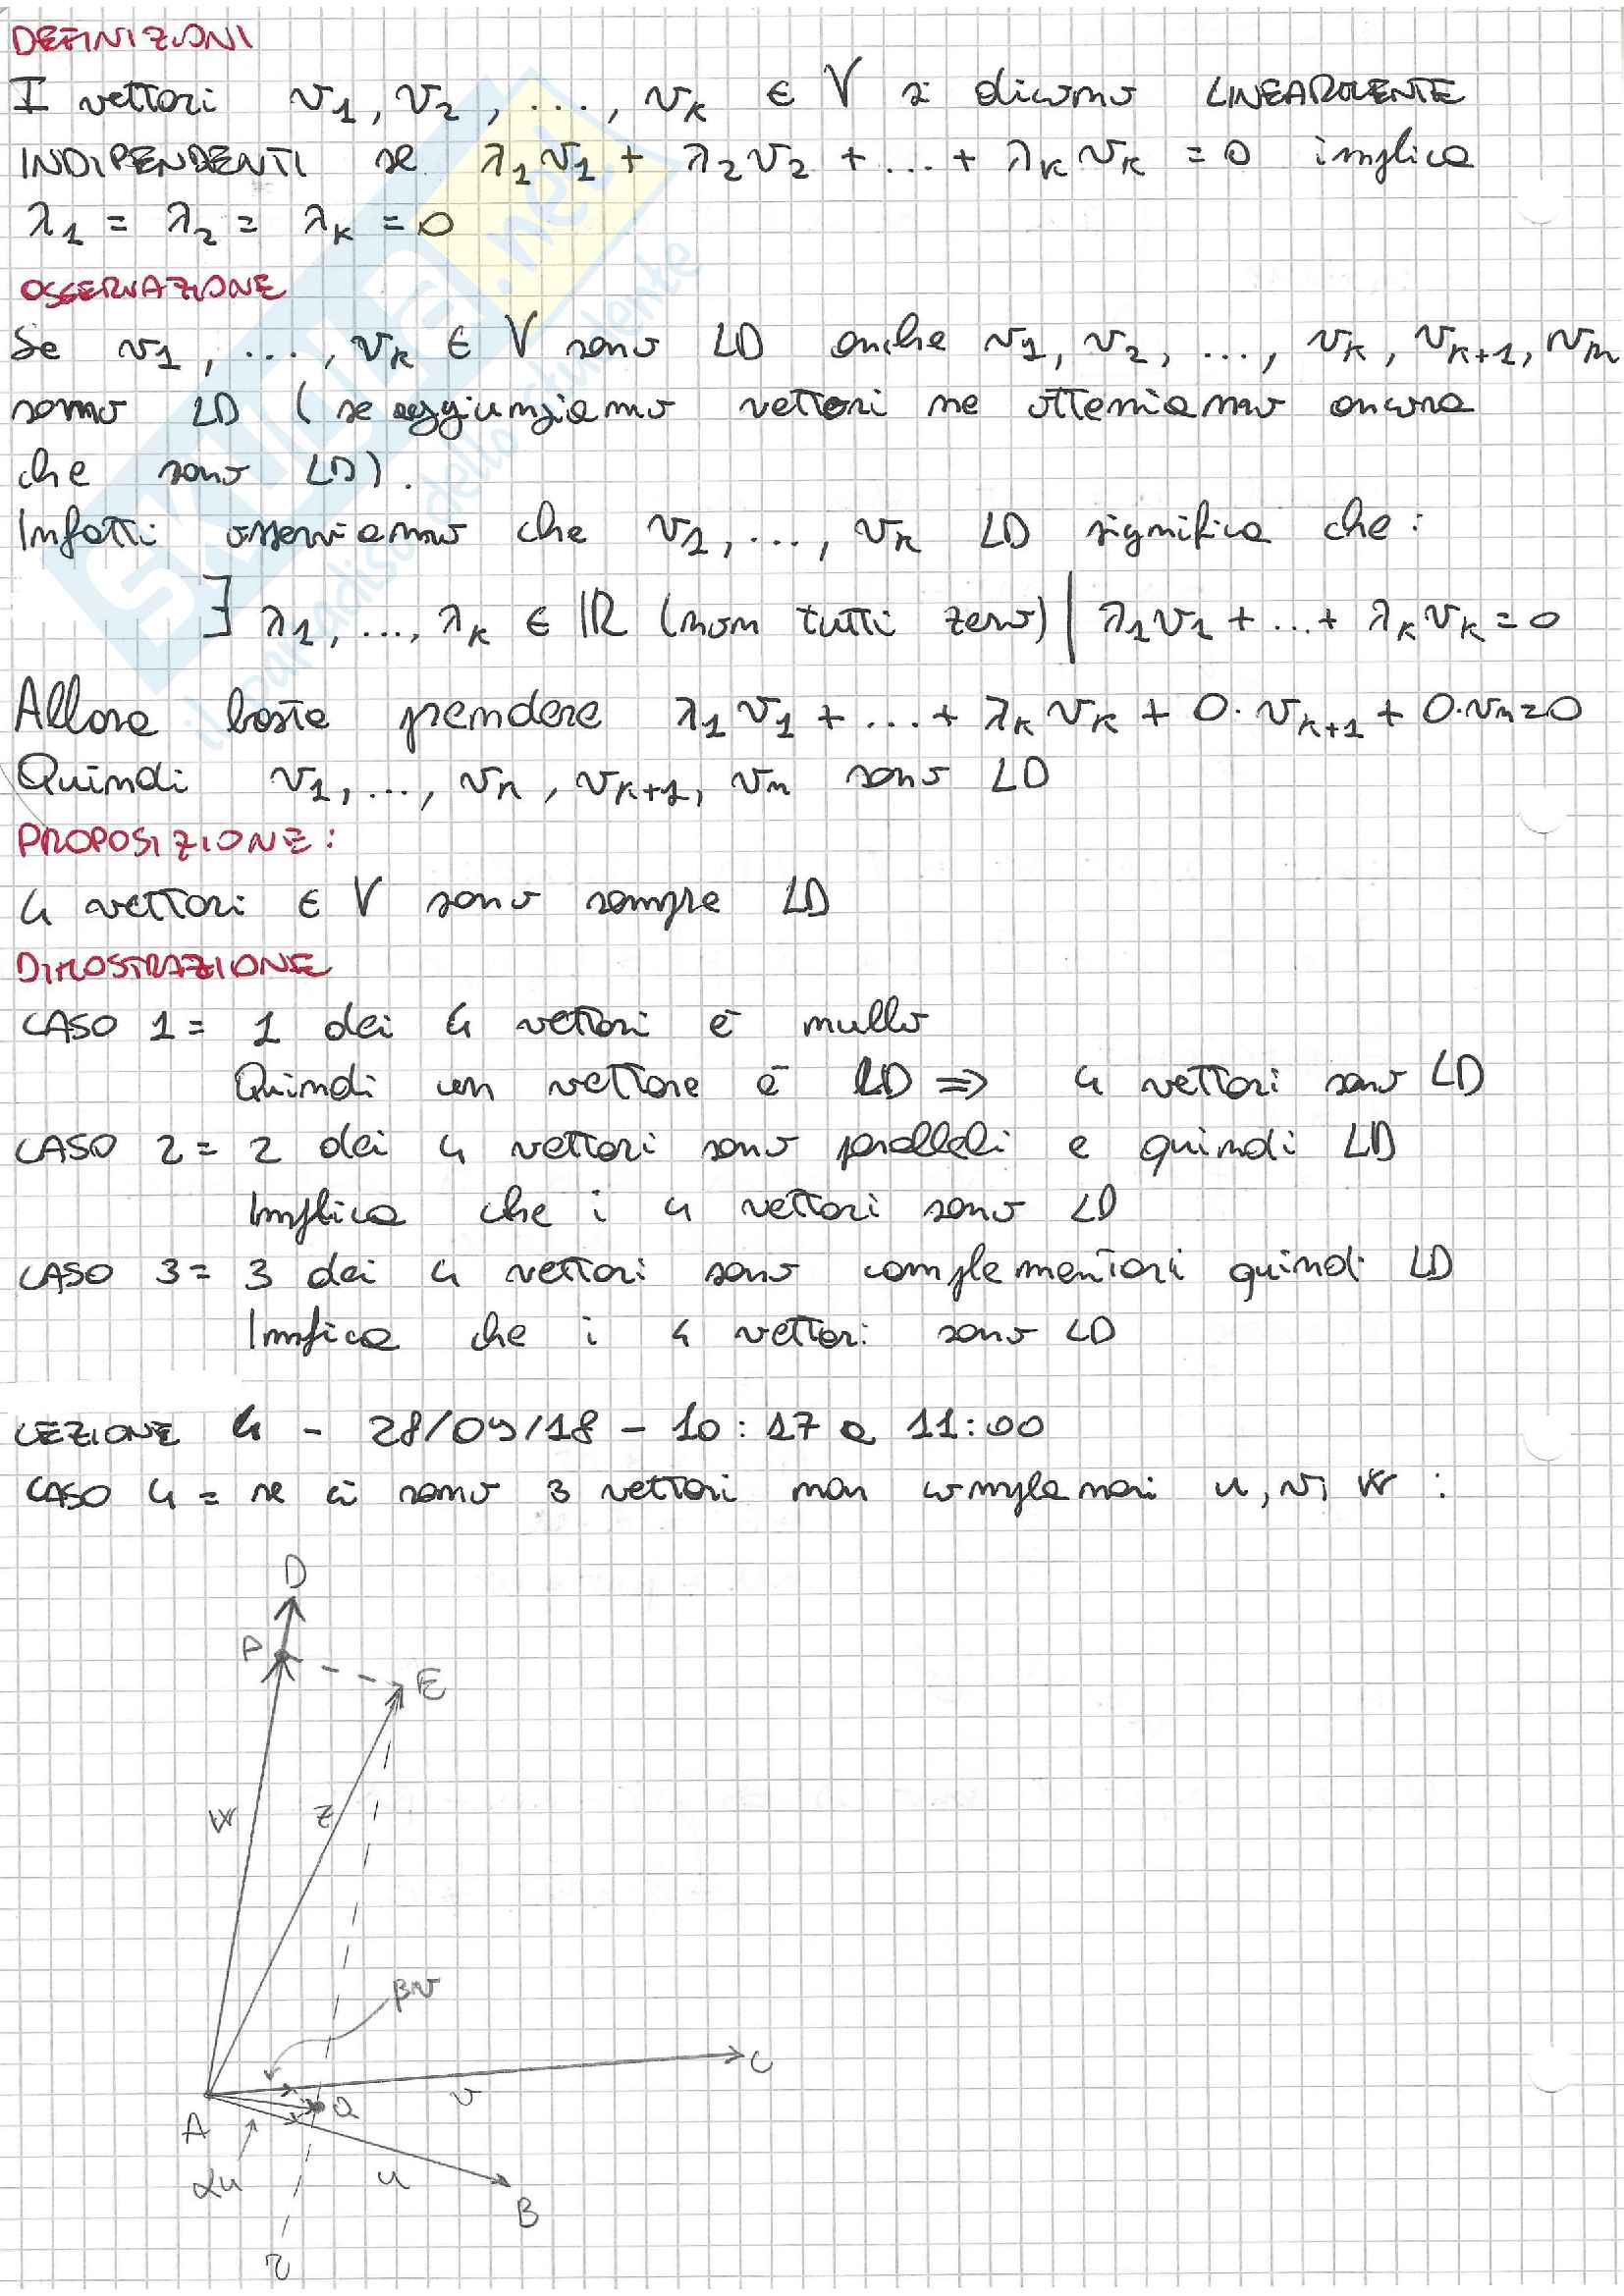 DEFINIZIONI
I vettori v₁, v₂, ..., vₖ ∈ V si dicono LINEARMENTE
INDIPENDENTI se λ₁v₁ + λ₂v₂ + ... + λₖvₖ = 0 implica
λ₁ = λ₂ = λₖ = 0
OSSERVAZIONE
Se v₁, ..., vₖ ∈ V sono LD anche v₁, v₂, ..., vₖ, vₖ₊₁, vₙ
sono LD (se aggiungiamo vettori ne otteniamo ancora
che sono LD).
Infatti osserviamo che v₁, ..., vₖ LD significa che:
∃ λ₁, ..., λₖ ∈ ℝ (non tutti zero) | λ₁v₁ + ... + λₖvₖ = 0
Allora basta prendere λ₁v₁ + ... + λₖvₖ + 0·vₖ₊₁ + 0·vₙ = 0
Quindi v₁, ..., vₖ, vₖ₊₁, vₙ sono LD
PROPOSIZIONE:
4 vettori ∈ V sono sempre LD
DIMOSTRAZIONE
CASO 1 = 1 dei 4 vettori è nullo
Quindi un vettore è LD ⇒ 4 vettori sono LD
CASO 2 = 2 dei 4 vettori sono paralleli e quindi LD
Implica che i 4 vettori sono LD
CASO 3 = 3 dei 4 vettori sono complementari quindi LD
Implica che i 4 vettori sono LD
LEZIONE 4 - 28/09/18 - 10:17 a 11:00
CASO 4 = se ci sono 3 vettori non complanari u, v, w :
D
P
E
w
z
βv
C
v
A
Q
αu
u
B
r
SKUOLA.net
il paradiso dello studente